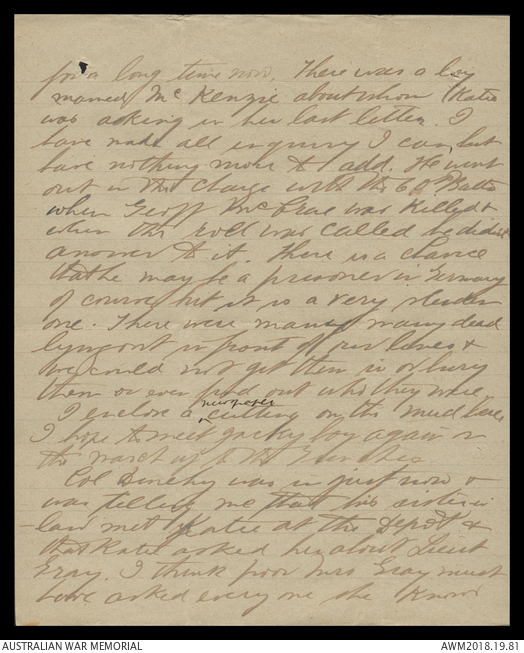 for a long time now. There was a boy
named McKenzie about whom Katie
was asking in her last letter. I
have made all inquiry I can but
have nothing more to add. He went
out in the charge with the 60 Battn
when Geoff McCrae was killed &
when the roll was called he didnt
answer to it. There is a chance
that he may be a prisoner in Germany
of course but it is a very slender
one. There were many many dead
lying out in front of our lines &
we could not get them in or bury
them or even find out who they were.
I enclose a newspaper cutting on the mud here
I hope to meet Jacky boy again in
the march up to the trenches
Col Duncan was in just now &
was telling me that his sister in
-law met Katie at the Depot &
that Katie asked her about Lieut
Gray. I think poor Mrs Gray must
have asked every one she knows
AUSTRALIAN WAR MEMORIAL
AWM2018.19.81